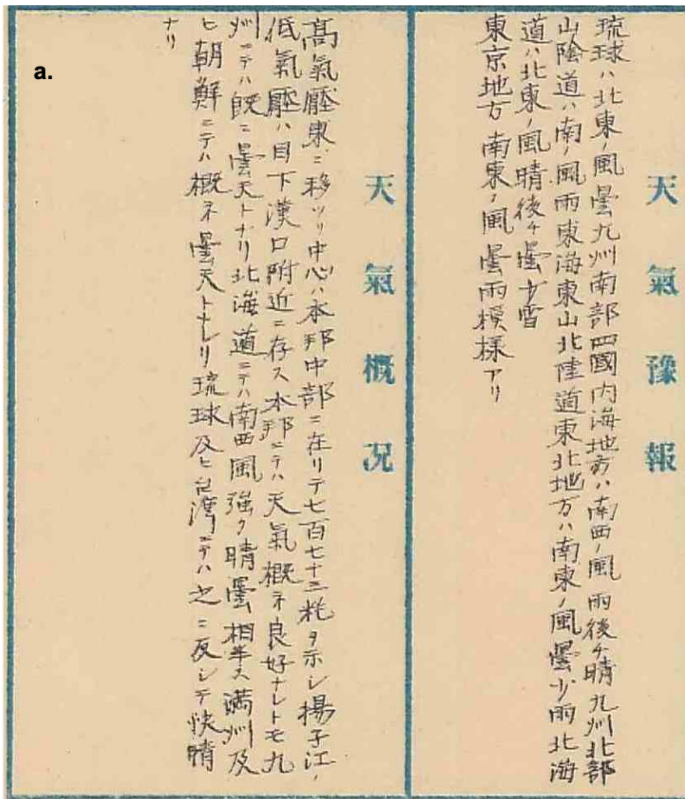 a.
天氣豫報
琉球ハ北東ノ風曇九州南部四國内海地方ハ南西ノ風雨後チ晴九州北部
山陰道ハ南ノ風雨東海東山北陸道東北地方ハ南東ノ風曇少雨北海
道ハ北東ノ風晴後チ曇少雪
東京地方 南東ノ風曇雨模様アリ
天氣概况
髙氣壓東ニ移ツリ中心ハ本邦中部ニ在リテ七百七十三粍ヲ示シ揚子江ノ
低氣壓ハ目下漢口附近ニ存ス本邦ニテハ天氣概ネ良好ナレトモ九
州ニテハ既ニ曇天トナリ北海道ニテハ南西風強ク晴曇相半ス満州及
ヒ朝鮮ニテハ概ネ曇天トナレリ琉球及ヒ台湾ニテハ之ニ反シテ快晴
ナリ